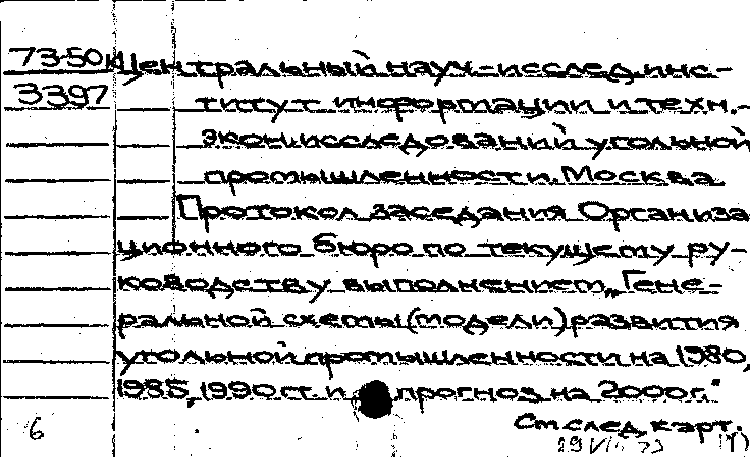 73-50к Центральный науч.-исслед. инс-
3397 титут информации и техн.-
экон. исследований угольной
промышленности. Москва
Протокол заседания Организа
ционного бюро по текущему ру-
ководству выполнением „Гене-
ральной схемы (модели) развития
угольной промышленности на 1980,
1985, 1990 гг. и прогноз на 2000 г."
См. след. карт.
6